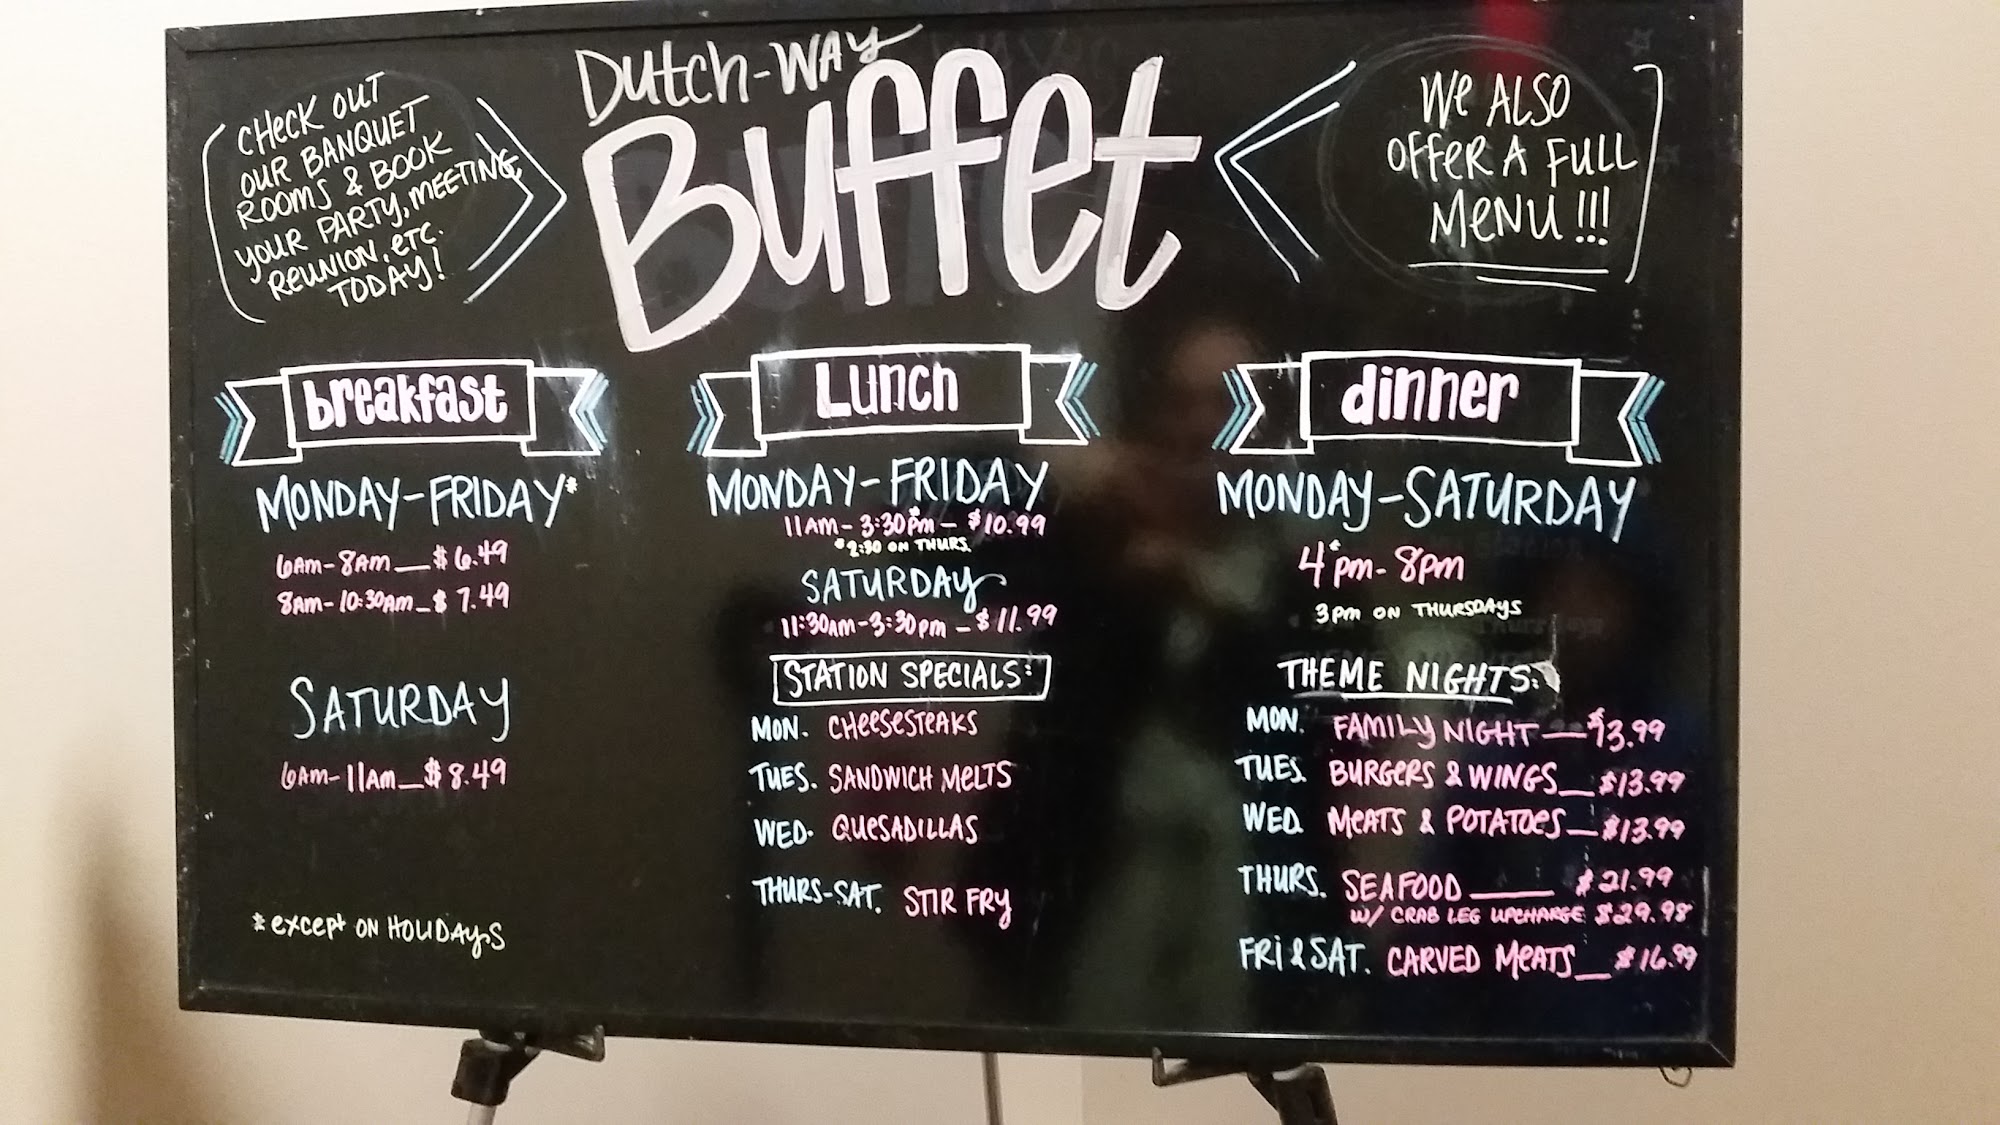 Dutch-Way
Buffet
CHECK OUT
OUR BANQUET
ROOMS & BOOK
YOUR PARTY, MEETING
REUNION, ETC.
TODAY!
WE ALSO
OFFER A FULL
MENU!!!
breakfast
MONDAY-FRIDAY*
6AM-8AM__$6.49
8AM-10:30AM_$7.49
SATURDAY
6AM-11AM__$8.49
*except ON HOLIDAYS
Lunch
MONDAY-FRIDAY
11AM-3:30PM*-$10.99
*2:30 ON THURS.
SATURDAY
11:30AM-3:30PM-$11.99
STATION SPECIALS:
MON. CHEESESTEAKS
TUES. SANDWICH MELTS
WED. QUESADILLAS
THURS-SAT. STIR FRY
dinner
MONDAY-SATURDAY
4*PM-8PM
3PM ON THURSDAYS
THEME NIGHTS:
MON. FAMILY NIGHT __ $13.99
TUES. BURGERS & WINGS__$13.99
WED. MEATS & POTATOES__$13.99
THURS. SEAFOOD ____ $21.99
W/ CRAB LEG UPCHARGE $29.98
FRI & SAT. CARVED MEATS__$16.99